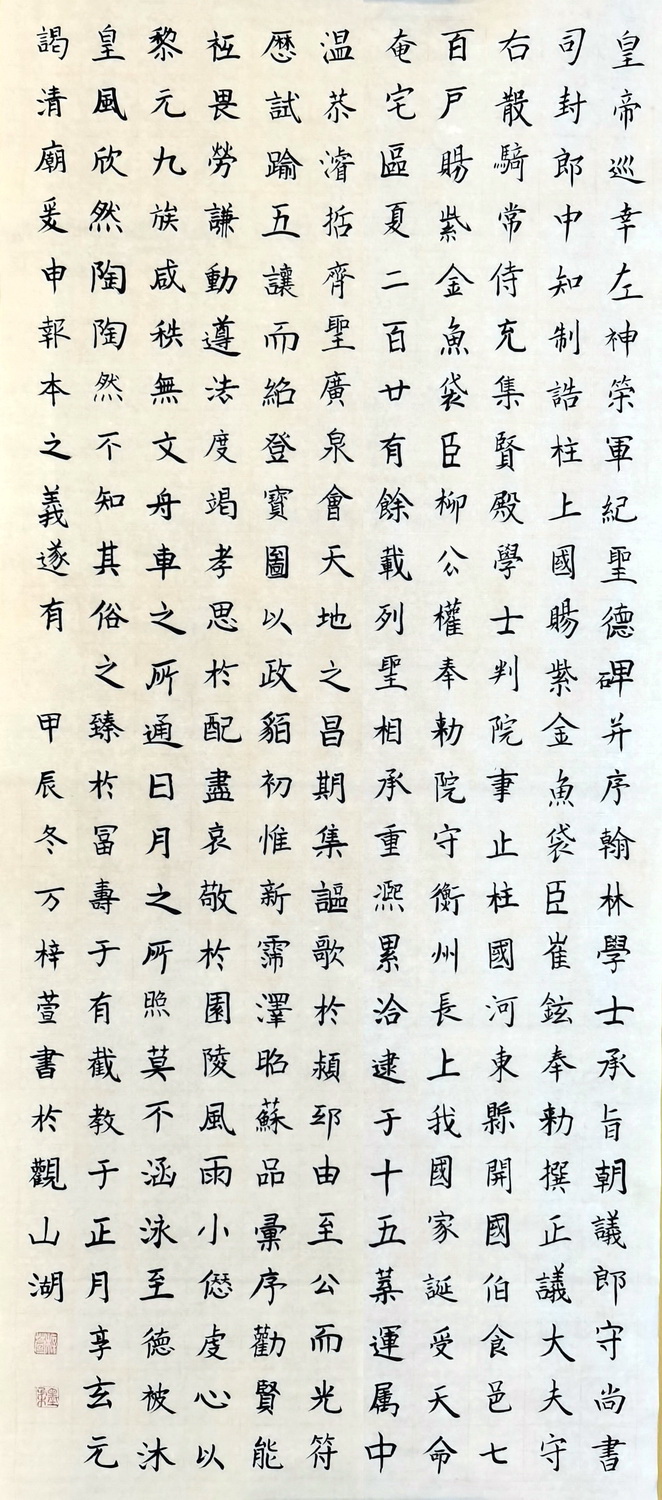 皇帝巡幸左神策軍紀聖德碑并序翰林學士承旨朝議郎守尚書
司封郎中知制誥柱上國賜紫金魚袋臣崔鉉奉勅撰正議大夫守
右散騎常侍充集賢殿學士判院事止柱國河東縣開國伯食邑七
百戶賜紫金魚袋臣柳公權奉勅院守衡州長上我國家誕受天命
奄宅區夏二百廿有餘載列聖相承重熙累洽逮于十五葉運属中
温恭濬哲齊聖廣泉會天地之昌期集謳歌於潁邸由至公而光符
歷試踰五讓而紹登寶圖以政貊初惟新霈澤昭蘇品彙序勸賢能
祗畏勞謙動遵法度竭孝思於配盡哀敬於園陵風雨小愆虔心以
黎元九族咸秩無文舟車之所通日月之所照莫不涵泳至德被沐
皇風欣然陶陶然不知其俗之臻於冨壽于有截教于正月享玄元
謁清廟爰申報本之義遂有 甲辰冬万梓萱書於觀山湖